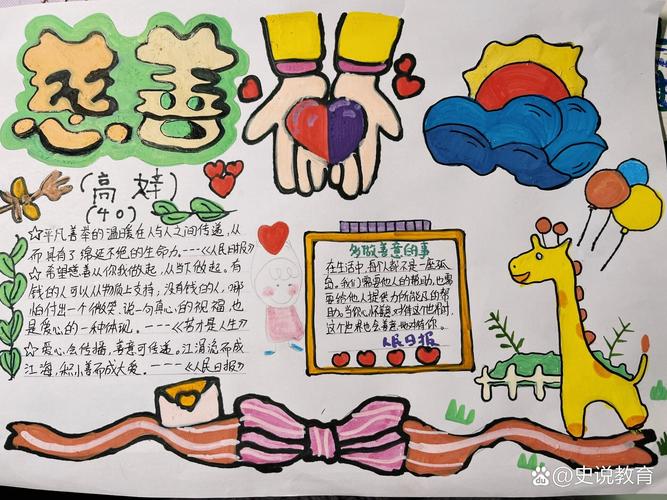 慈善
(高娃)
(40)
☆平凡善举的温暖在人与人之间传递,从
而具有了绵延不绝的生命力。----《人民日报》
☆希望慈善从你我做起,从当下做起。有
钱的人可以从物质上支持,没有钱的人,哪
怕付出一个微笑、说一句真心的祝福,也
是爱心的一种体现。----《苦才是人生》
☆爱心会传播,善意可传递。江涓流而成
江海,积小善而成大爱。----《人民日报》
多做善意的事
在生活中,每个人都不是一座孤
岛。我们需要他人的帮助,也需
要给他人提供力所能及的帮
助。当你心怀善意对待这个世界时,
这个世界也会善意地对待你。
人民日报
Bai du 百度 @史说教育